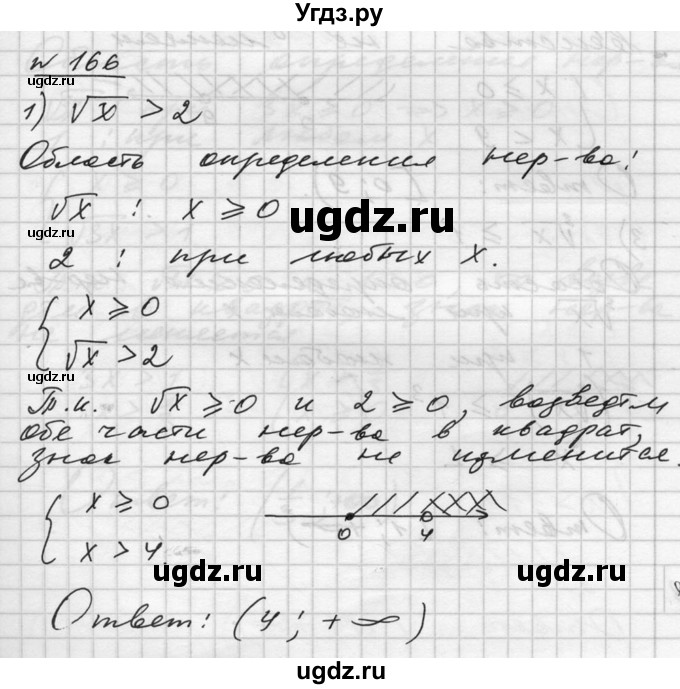 Угдз.ру
№ 166
ugdz.ru
1) √x > 2
Область определения нер-ва:
√x : x ⩾ 0
ugdz.ru
ugdz.ru
2 : при любых x.
{ x ⩾ 0
√x > 2
ugdz.ru
ugdz.ru
Т.к. √x ⩾ 0 и 2 ⩾ 0, возведём
обе части нер-ва в квадрат,
знак нер-ва не изменится.
{ x ⩾ 0
x > 4
0 4
ugdz.ru
ugdz.ru
Ответ: (4; +∞)
ugdz.ru
ugdz.ru